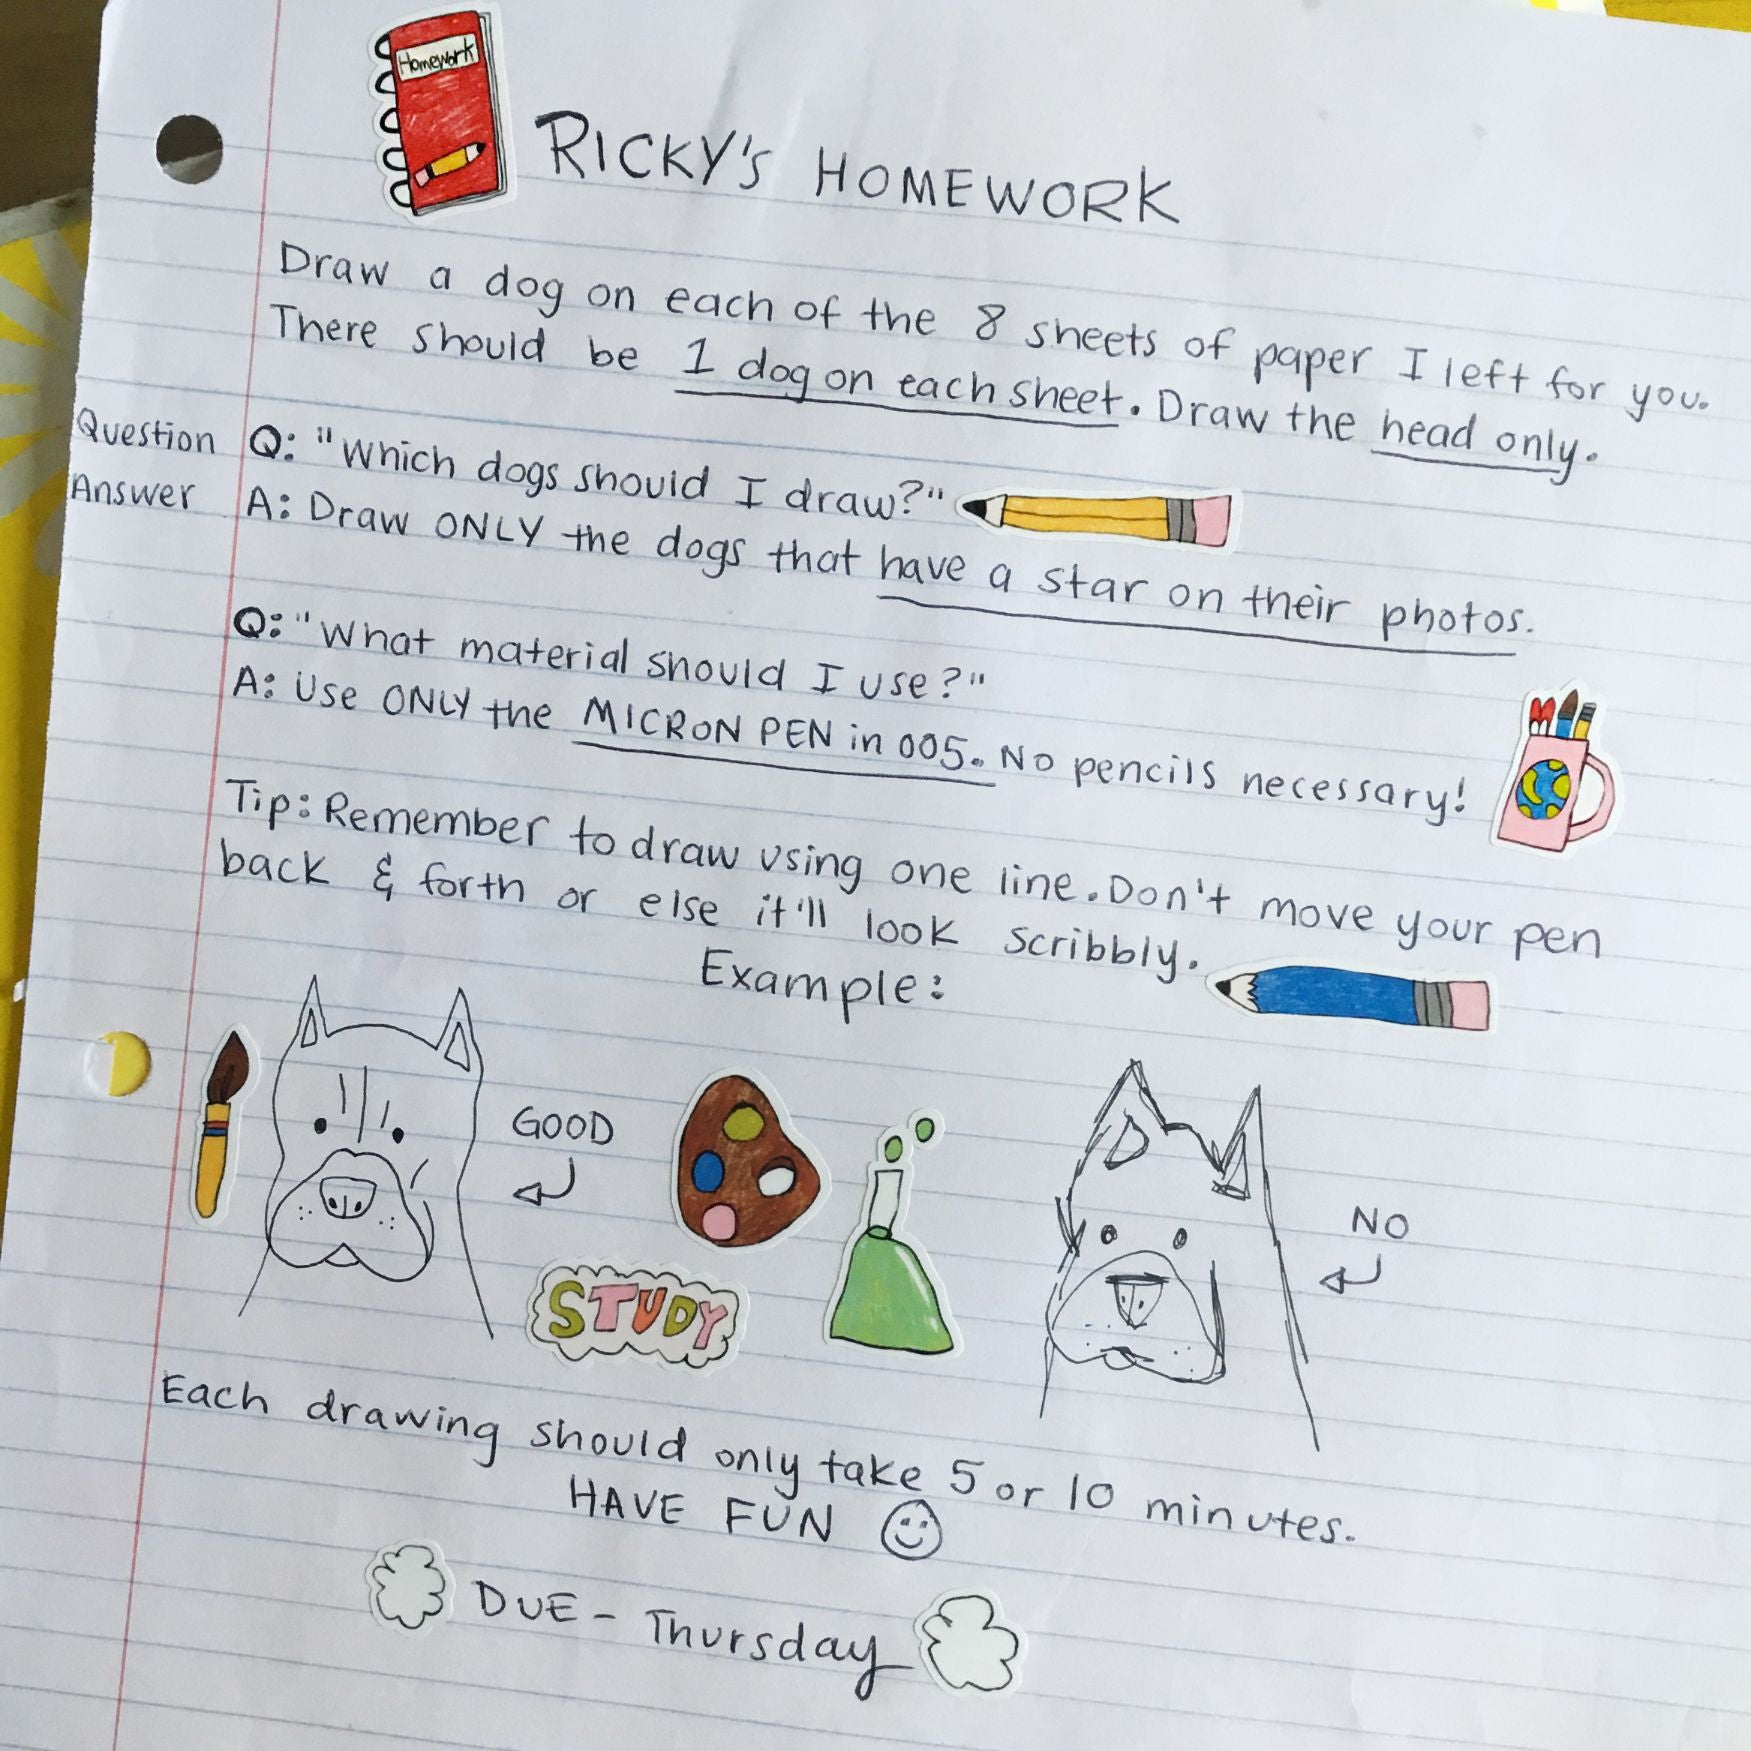 Homework
RICKY'S HOMEWORK
Draw a dog on each of the 8 sheets of paper I left for you.
There should be 1 dog on each sheet. Draw the head only.
Question Q: "Which dogs should I draw?"
Answer A: Draw ONLY the dogs that have a star on their photos.
Q: "What material should I use?"
A: Use ONLY the MICRON PEN in 005. No pencils necessary!
Tip: Remember to draw using one line. Don't move your pen
back & forth or else it'll look scribbly.
Example:
GOOD
NO
STUDY
Each drawing should only take 5 or 10 minutes.
HAVE FUN
DUE - Thursday